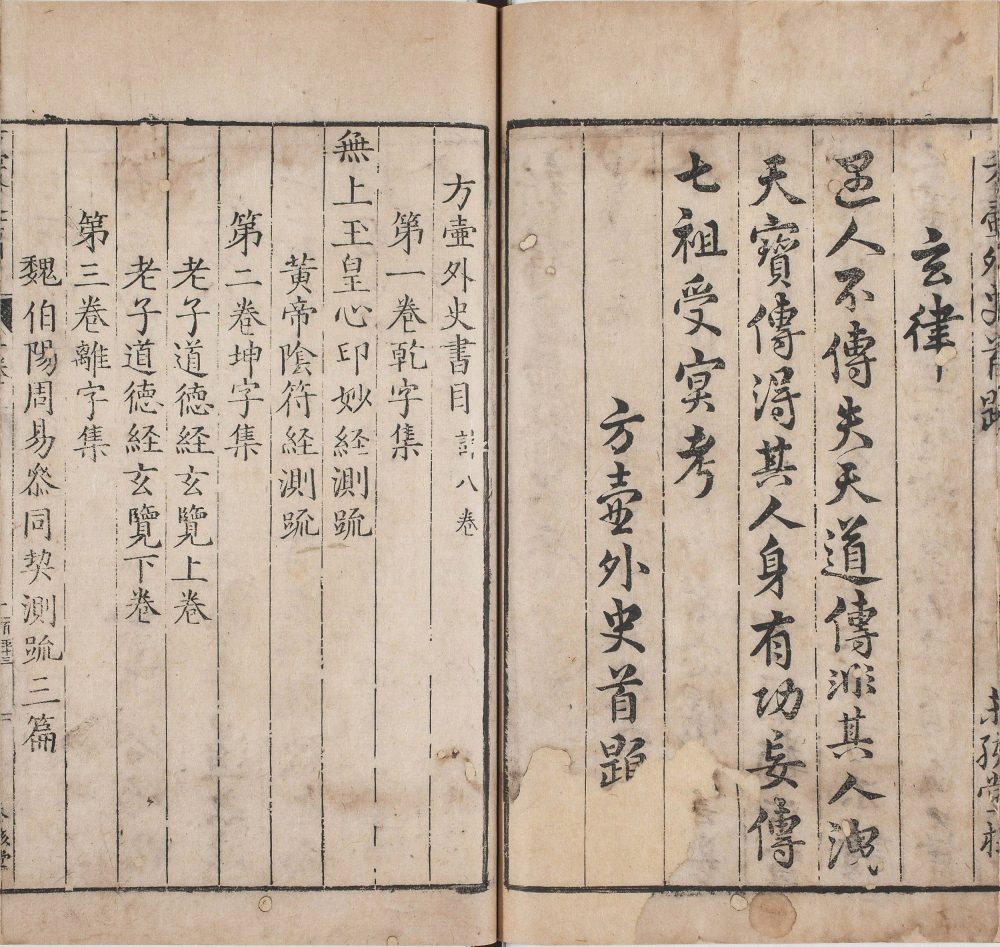 方壺外史首題
未孩堂梓
玄律
遇人不傳失天道傳非其人洩
天寶傳得其人身有功妄傳
七祖受冥考
方壺外史首題
方壺外史書目計八卷
第一卷乾字集
無上玉皇心印妙經測疏
黃帝陰符経測疏
第二卷坤字集
老子道德経玄覽上卷
老子道德経玄覽下卷
第三卷離字集
魏伯陽周易叅同契測疏三篇